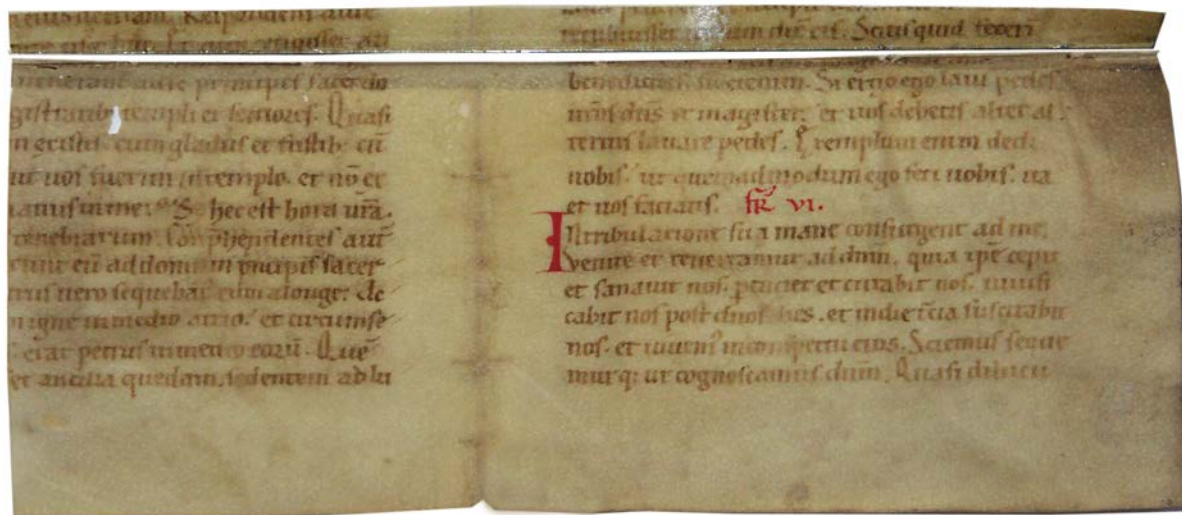 Respondens aute
tetigisset au
uenerant aute principes sacerdo
gistratib templi et seniores. Quasi
n existis cum gladiis et fustib: cū
uī uos fuerim in templo. et nō ex
manus in me. S; hec est hora urā.
tenebrarum. Conp̄hendentes aut̄
erunt eū ad domum p̄ncipis sacer
trus uero sequebat̄ eum a longe. Ac
igne in medio atrio. et circumse
erat petrus in medio eorū. Quē
et ancilla quedam. sedentem ad lu
recubuisset iterum dix̄ eis. Scitis quid fecerī
benedictus in eternum. Si ergo ego laui pedes
urōs dn̄s et magister. et uos debetis alter al,
terius lauare pedes. Exemplum enim dedi
uobis. ut quemadmodum ego feci uobis. ita
et uos faciatis. fr̄ VI.
In tribulatione sua mane consurgent ad me.
venite et reuertamur ad dn̄m. quia ip̄e cepit
et sanauit nos. p̄cutiet et curabit nos. uiuifi
cabit nos post duos dies. et in die t̄cia suscitabit
nos. et uiuem᾽ in conspectu eius. Sciemus seque
murq; ut cognoscamus dn̄m. Quasi dilucu